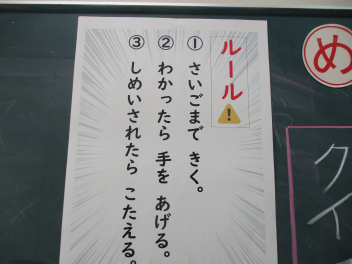 ルール
① さいごまで きく。
② わかったら 手を あげる。
③ しめいされたら こたえる。
め
クイ